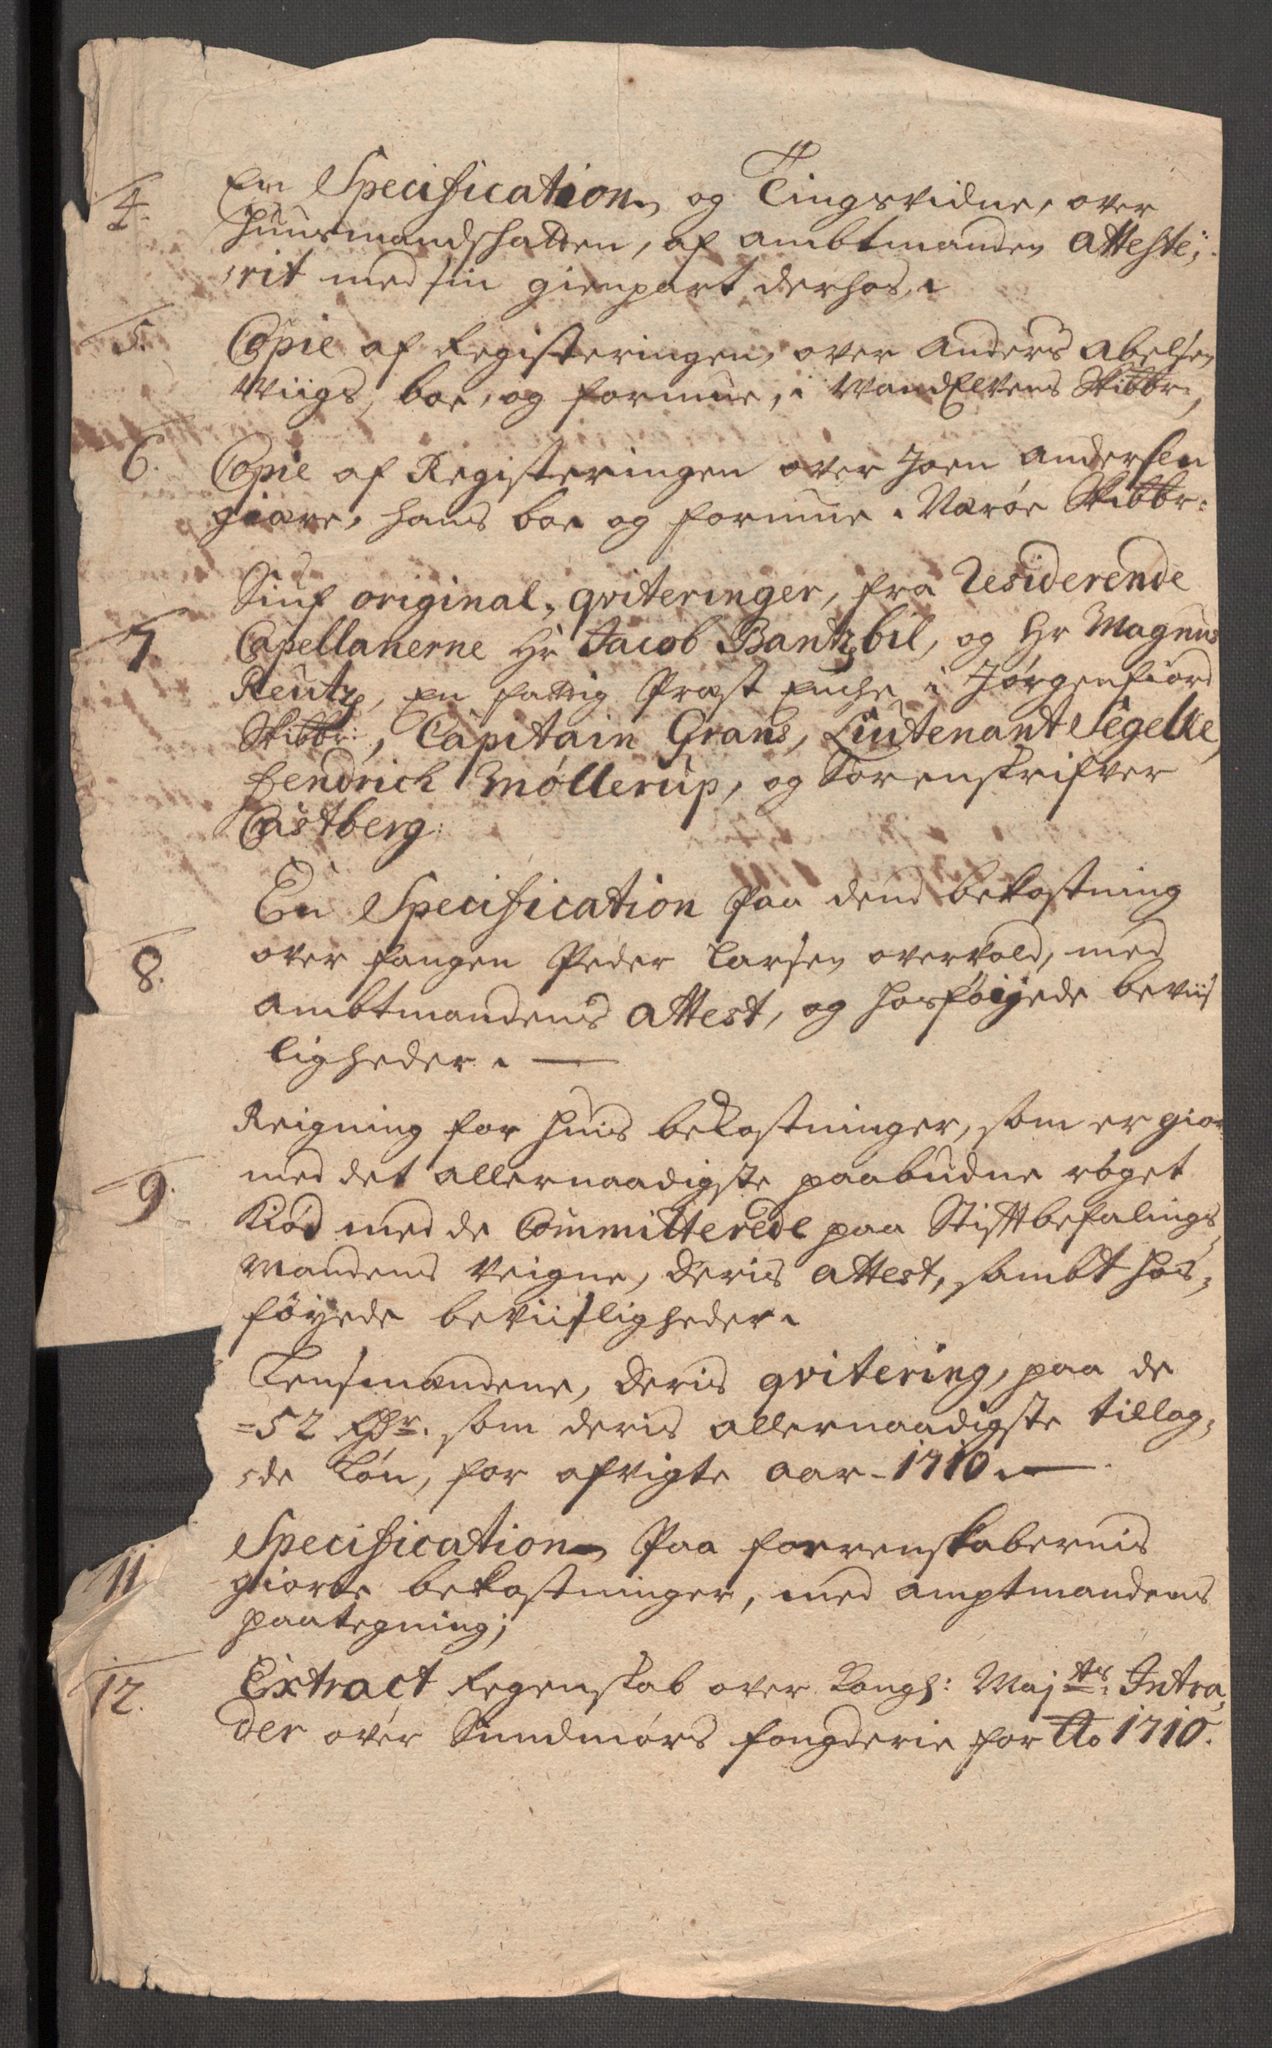 4. En Specification, og Tingsvidne, over
huusmandschatten, af ambtmanden Atteste-
rit med sin gienpart derhos.
5. Copie af Registeringen, over Anders Abelsen
Wiigs, boe, og formue, i WandElvens Skibbr:,
6. Copie af Registeringen over Joen Andersen
giære, hans boe og formue. Varøe Skibbr:
Siuf original, qviteringer, fra Residerende
7 Capellanerne Hr Jacob Bantzbil, og Hr Magnus
Reutz, En fattig Præst Enche i Jørgenfiord
Skibbr:, Capitain Grans, Liutenant Segelke,
Hendrich Møllerup, og Sorenskrifver
Castberg:
En Specification Paa dend bekostning
8. over fangen Peder Larsen overvold, med
Ambtmandens Attest, og hosføijede beviis
ligheder. —
Reigning for huis bekostninger, som er gior
9. med det allernaadigste paabudne røget
Kiød med de Committerede paa Stiftbefalings
mandens Veigne, deris Attest, sambt hos-
føyede beviisligheder.
Lensmændene, deris qvitering, paa de
=52 Rdr. som deris allernaadigste tillag-
de Løn, for afvigte aar - 1710. —
11. Specification Paa forrenskabernis
giorte bekostninger, med amptmandens
paategning;
12. Extract Regenskab over Kongl: Maj:ts Intra-
der over Sundmørs fougderie for Ao 1710.